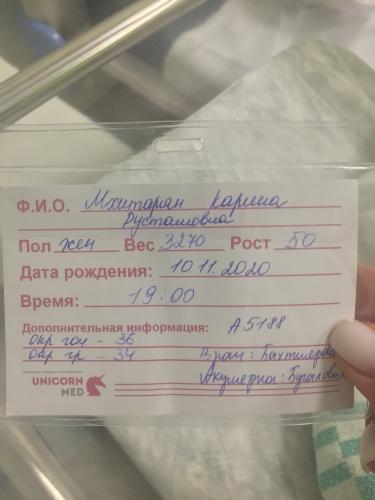 Ф.И.О. Мхитарян Карина
Рустамовна
Пол жен Вес 3270 Рост 50
Дата рождения: 10.11.2020
Время: 19:00
Дополнительная информация: А5188
окр гол - 36
окр гр - 34 Врач:
UNICORN MED Акушерка: